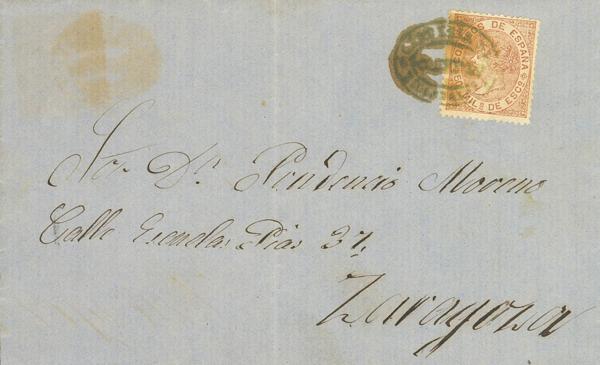 DE ESPAÑA
MILS DE ESCO
Sr. Dn. Prudencio Moreno
Calle Escuelas Pias 37,
Zaragoza